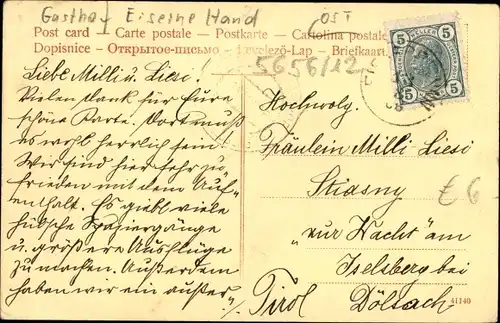 Gasthof Eiserne Hand
OST
Post card - Carte postale - Postkarte - Cartolina postale
Dopisnice - Открытое-письмо - Levelező-Lap - Briefkaart
5656/12
5 HELLER 5
5 5
Liebe Milli u. Liesi!
Vielen Dank für Eure
schöne Karte. Dort muß
es wohl herrlich sein.
Wir sind hier sehr zu-
frieden mit dem Auf-
enthalt. Es giebt viele
hübsche Spaziergänge
u. größere Ausflüge
zu machen. Außerdem
haben wir ein außer-
Hochwolg.
Fräulein Milli Liesi
Stiasny
"zur Wacht" am
Iselsberg bei
Dölsach
Tirol
£ 6-
41140